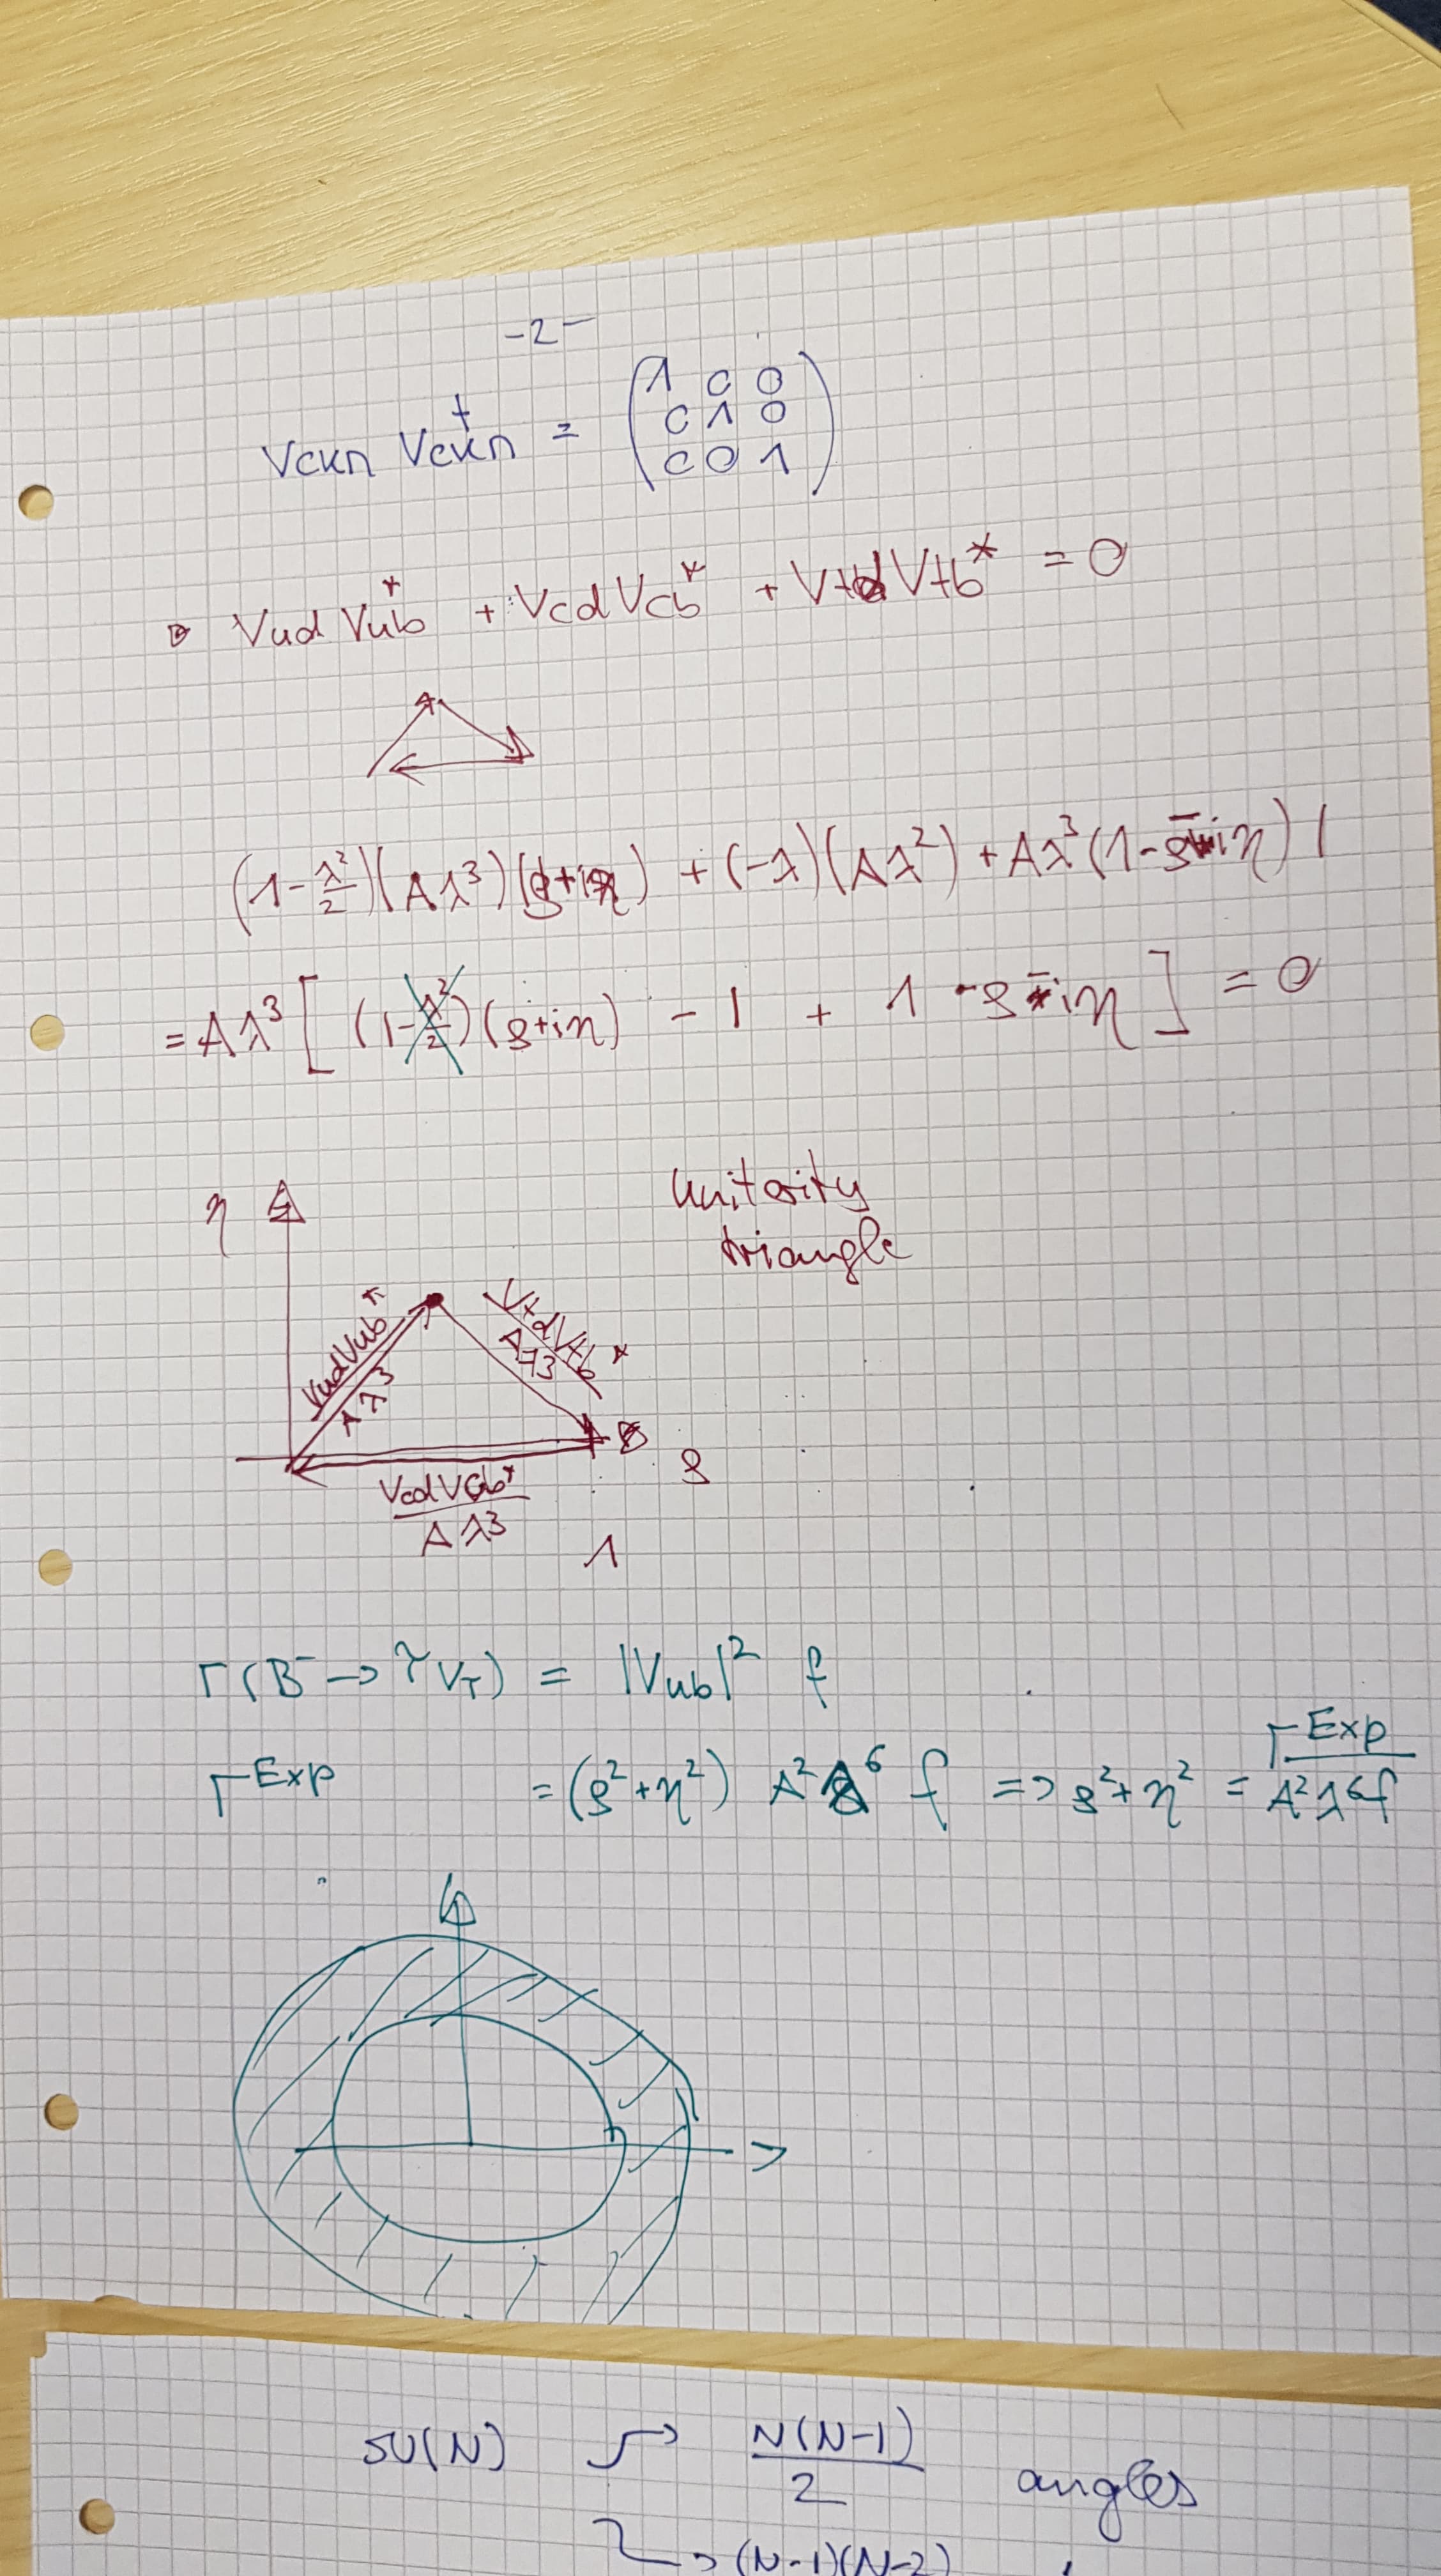 -2-
VCKM VCKM† = (1 0 0
0 1 0
0 0 1)
Vud Vub* + Vcd Vcb* + Vtd Vtb* = 0
(1-λ²/2)(Aλ³)(ρ+iη) + (-λ)(Aλ²) + Aλ³(1-ρ-iη) 1
= Aλ³ [ (1-λ²/2)(ρ+iη) - 1 + 1 - ρ - iη ] = 0
η
Unitarity
triangle
VudVub*
Aλ³
VtdVtb*
Aλ³
ρ
VcdVcb*
Aλ³
1
Γ(B⁻ → τ ντ) = |Vub|² f
Γ^Exp = (ρ²+η²) A² λ⁶ f => ρ²+η² = Γ^Exp / A²λ⁶f
SU(N) → N(N-1)/2 angles
→ (N-1)(N-2)